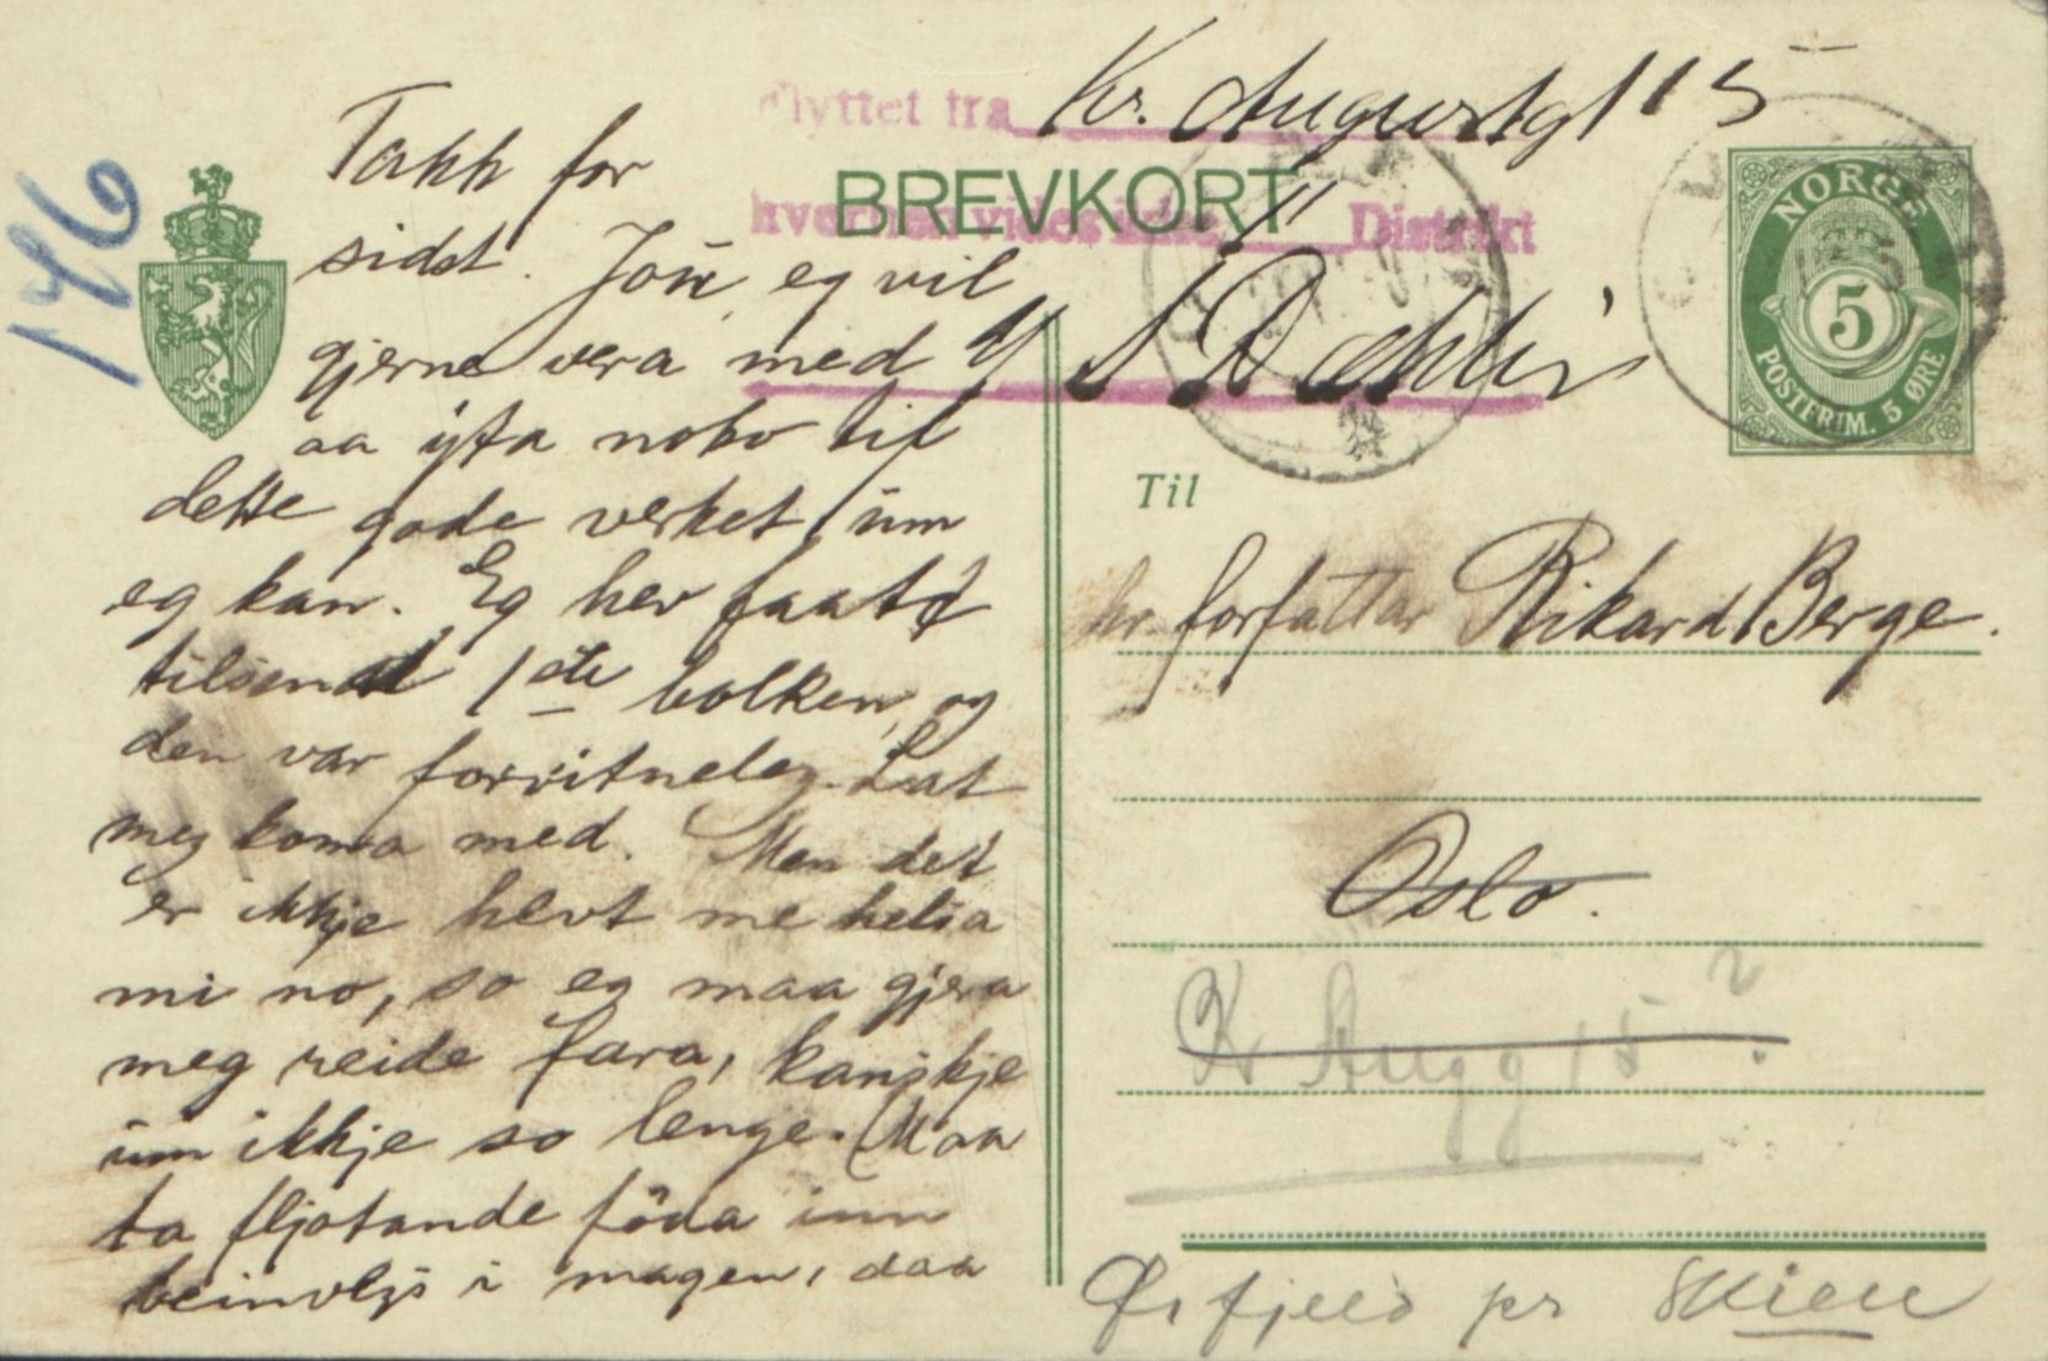 146
Takk for
sidst. Jou, eg vil
gjerne vera med
aa yta noko til
dette gode verket, um
eg kan. Eg hev faatt
tilsendt 1ste bolken, og
den var forvitneleg. Lat
meg koma med. Men det
er ikkje hevt me helsa
mi no, so eg maa gjera
meg reide fara, kanskje
um ikkje so lenge. Maa
ta fljotande föda inn
beinvegs i magen, daa
Flyttet fra Kr. Augustgt 15
BREVKORT
hvorhen vides ikke 11 Distrikt
NORGE
5
POSTFRIM. 5 ØRE
Til
hr. forfattar Rikard Berge.
Oslo.
K Augg 15 ?
Ørfjeld pr Skien